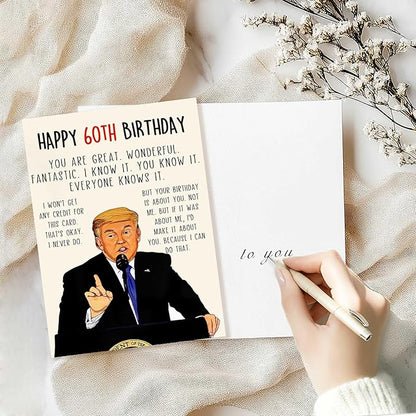 HAPPY 60TH BIRTHDAY
YOU ARE GREAT. WONDERFUL.
FANTASTIC. I KNOW IT. YOU KNOW IT.
EVERYONE KNOWS IT.
I WON'T GET
ANY CREDIT FOR
THIS CARD.
THAT'S OKAY.
I NEVER DO.
BUT YOUR BIRTHDAY
IS ABOUT YOU. NOT
ME. BUT IF IT WAS
ABOUT ME, I'D
MAKE IT ABOUT
YOU. BECAUSE I CAN
DO THAT.
to you